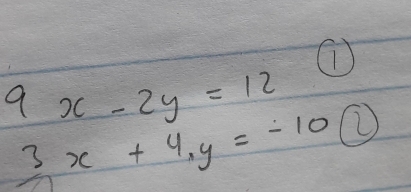 9x - 2y = 12 ①
3x + 4y = -10 ②